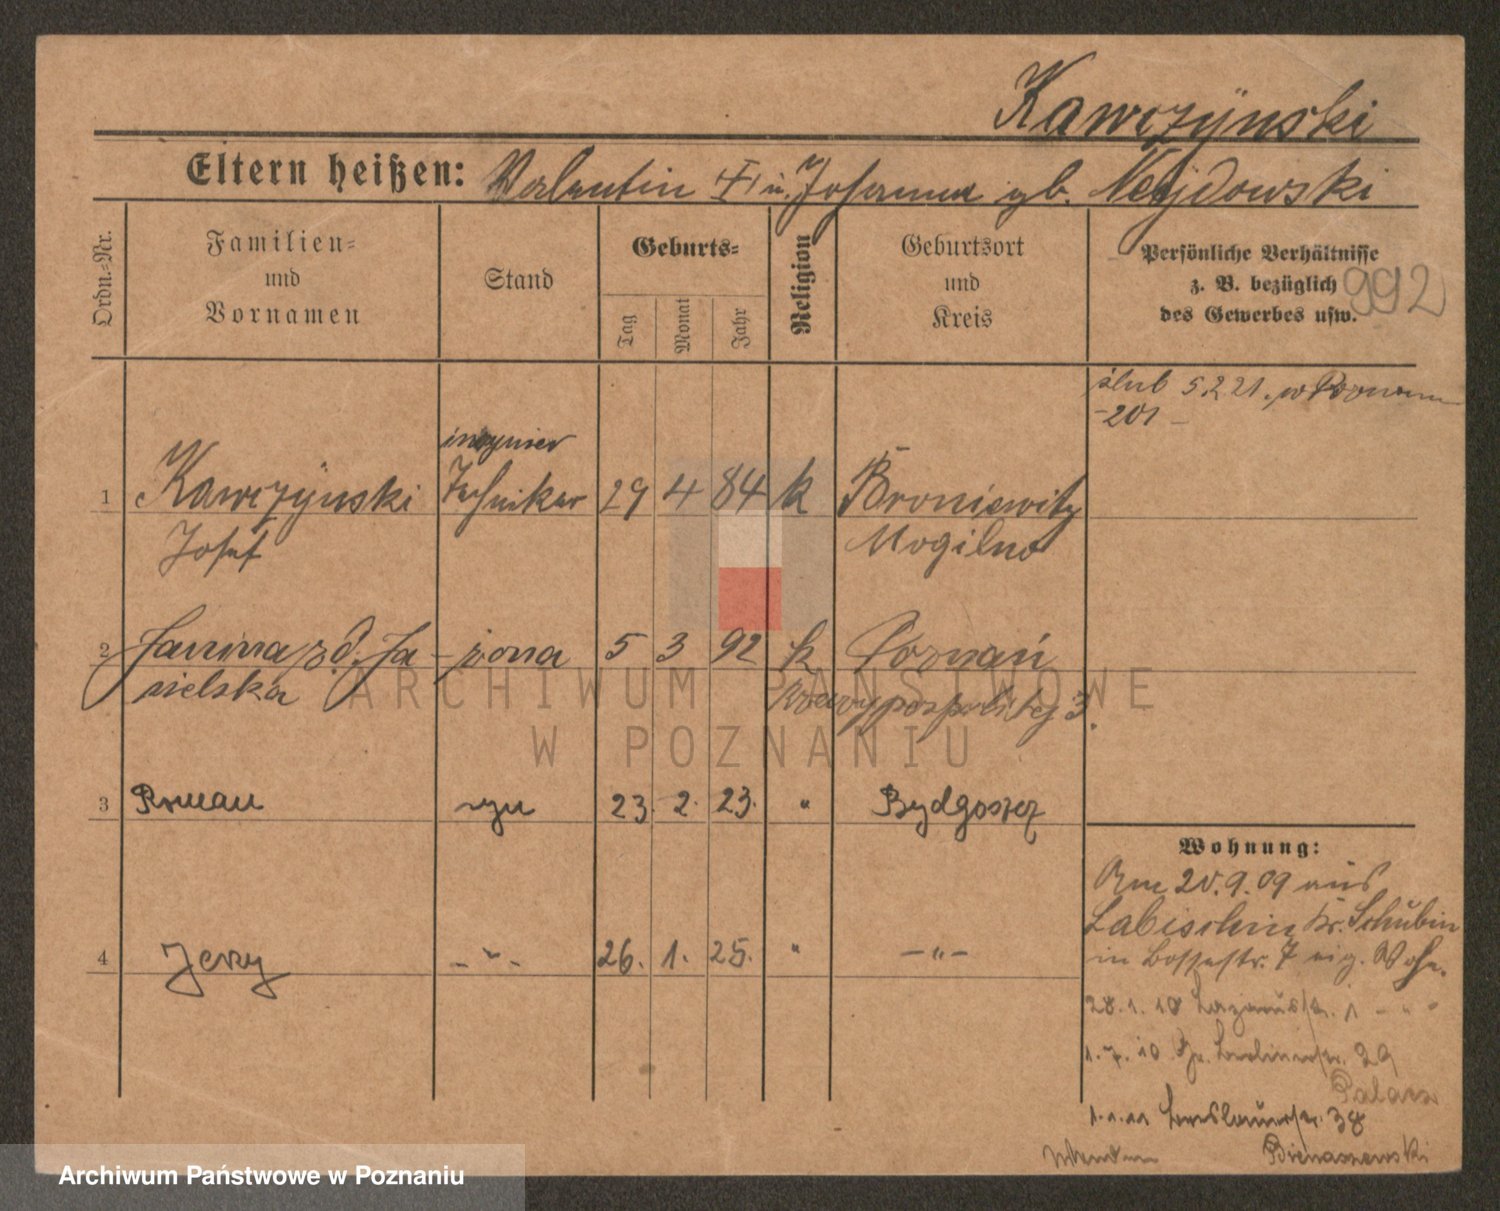 Kawczÿnski
Eltern heißen: Valentin u. Johanna gb.
Ordn.-Nr.
Familien-
und
Vornamen
Stand
Geburts-
Tag
Monat
Jahr
Religion
Geburtsort
und
Kreis
Persönliche Verhältnisse
z. B. bezüglich
des Gewerbes usw.
992
ślub 5.2 21. w
-201-
1 Kawczÿnski Techniker 29 4 84 k Broniewitz
Josef Mogilno
2 Janina żona 5 3 92 k Poznań
3 Roman syn 23. 2. 23. " Bydgoszcz
4 Jerzy - " - 26. 1. 25. " - " -
Wohnung:
Am 20.9.09 aus
Labischin Kr. Schubin
in 7 eig. Wohn.
28.1.10 1 - " "
1.7.10 Gr. Berlinerstr. 29
1.1.11 Breslauerstr. 38
ARCHIWUM PAŃSTWOWE
W POZNANIU
Archiwum Państwowe w Poznaniu